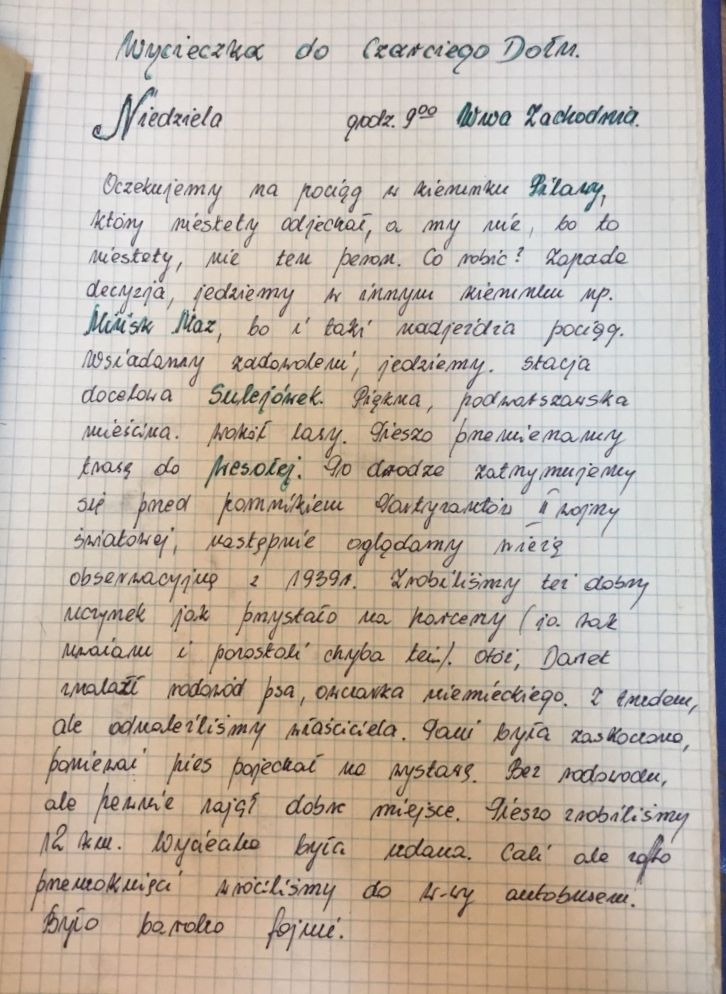 Wycieczka do Czarciego Dołu.
Niedziela godz. 9⁰⁰ Wwa Zachodnia.
Oczekujemy na pociąg w kierunku Pilawy,
który niestety odjechał, a my nie, bo to
niestety, nie ten peron. Co robić? Zapada
decyzja, jedziemy w innym kierunku np.
Mińsk Maz, bo i taki nadjeżdża pociąg.
Wsiadamy zadowoleni, jedziemy. Stacja
docelowa Sulejówek. Piękna, podwarszawska
mieścina. Wokół lasy. Pieszo przemierzamy
trasę do Wesołej. Po drodze zatrzymujemy
się przed pomnikiem Partyzantów II wojny
światowej, następnie oglądamy wieżę
obserwacyjną z 1939r. Zrobiliśmy też dobry
uczynek jak przystało na harcerzy (ja tak
uważam i pozostali chyba też). Otóż, Darek
znalazł rodowód psa, owczarka niemieckiego. Z trudem,
ale odnaleźliśmy właściciela. Pani była zaskoczona,
ponieważ pies pojechał na wystawę. Bez rodowodu,
ale pewnie zajął dobre miejsce. Pieszo zrobiliśmy
12 km. Wycieczka była udana. Cali ale
przemoknięci wróciliśmy do W-wy autobusem.
Było bardzo fajnie.